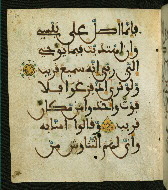 فإنما أضل على نفسي
وإن اهتديت فبما يوحي
إلي ربي إنه سميع قريب
ولو ترى إذ فزعوا فلا
فوت وأخذوا من مكان
قريب وقالوا آمنا به
وأنى لهم التناوش من